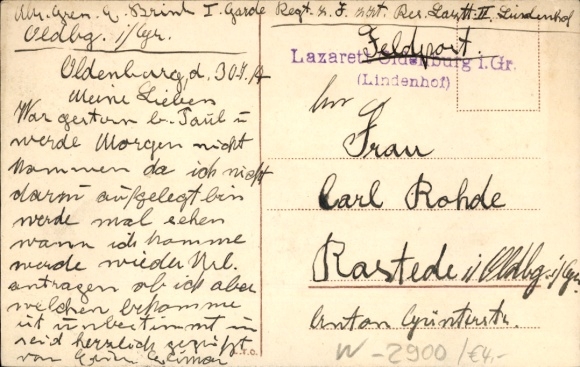 Abs. Gren. E. Brink I. Garde Regt. z. F. zzt. Res. Lazrtt. II. Lindenhof
Oldbg. i/Gr.
Feldpost.
Lazarett Oldenburg i. Gr.
(Lindenhof)
Oldenburg, d. 30.7.
Meine Lieben
War gestern b. Paul u
werde Morgen nicht
kommen da ich nicht
darzu aufgelegt bin
werde mal sehen
wann ich komme
werde wieder Url.
antragen ob ich aber
welchen bekomme
ist unbestimmt u
seid herzlich gegrüßt
von
An
Frau
Carl Rohde
Rastede i/Oldbg. i/Gr.
Anton Günterstr.
W-2900/€4,-